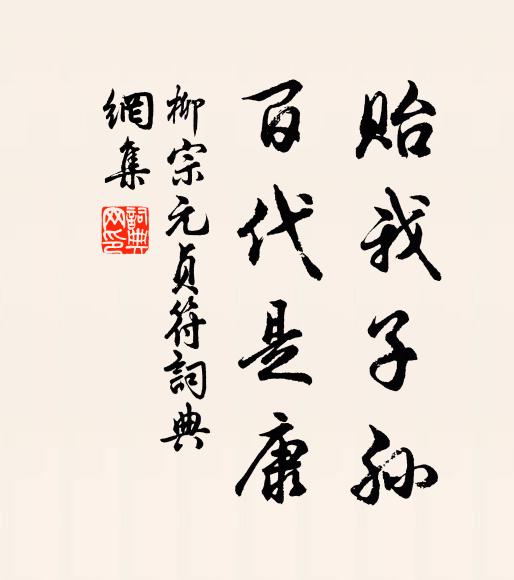 貽我子孫
百代是康
柳宗元貞符詞典
網集
詞典
网印